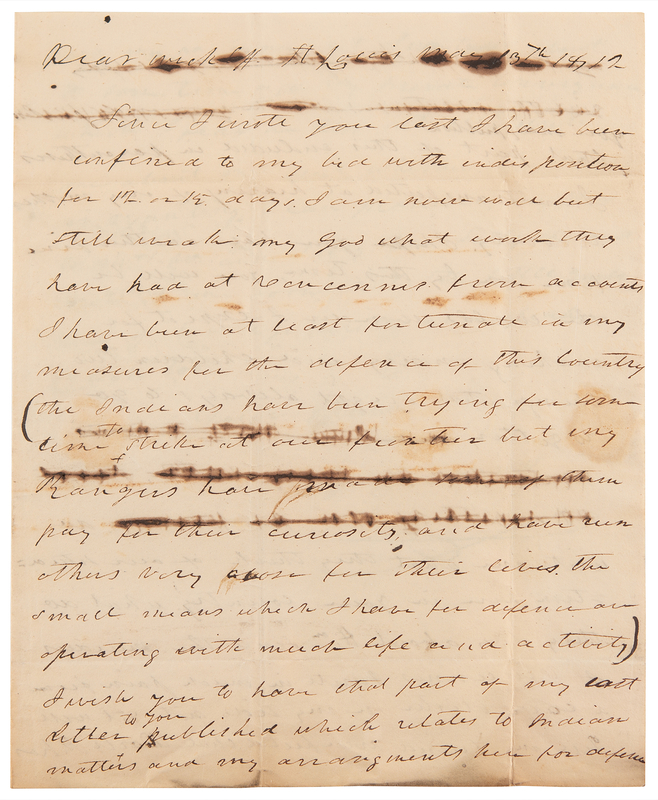 Dear Wickliff St Louis May 13th 1812
Since I wrote you last I have been
confined to my bed with indisposition
for 12 or 15 days. I am now well but
still weak. my God what work they
have had at Vencennes. from accounts
I have been at least fortunate in my
measures for the defence of this Country
(the Indians have been trying for some
time to strike at our frontier but my
Rangers have made some of them
pay for their curiosity, and have run
others very close for their lives. the
small means which I have for defence are
operating with much life and activity)
I wish you to have that part of my last
letter to you published which relates to Indian
matters and my arrangments here for defence